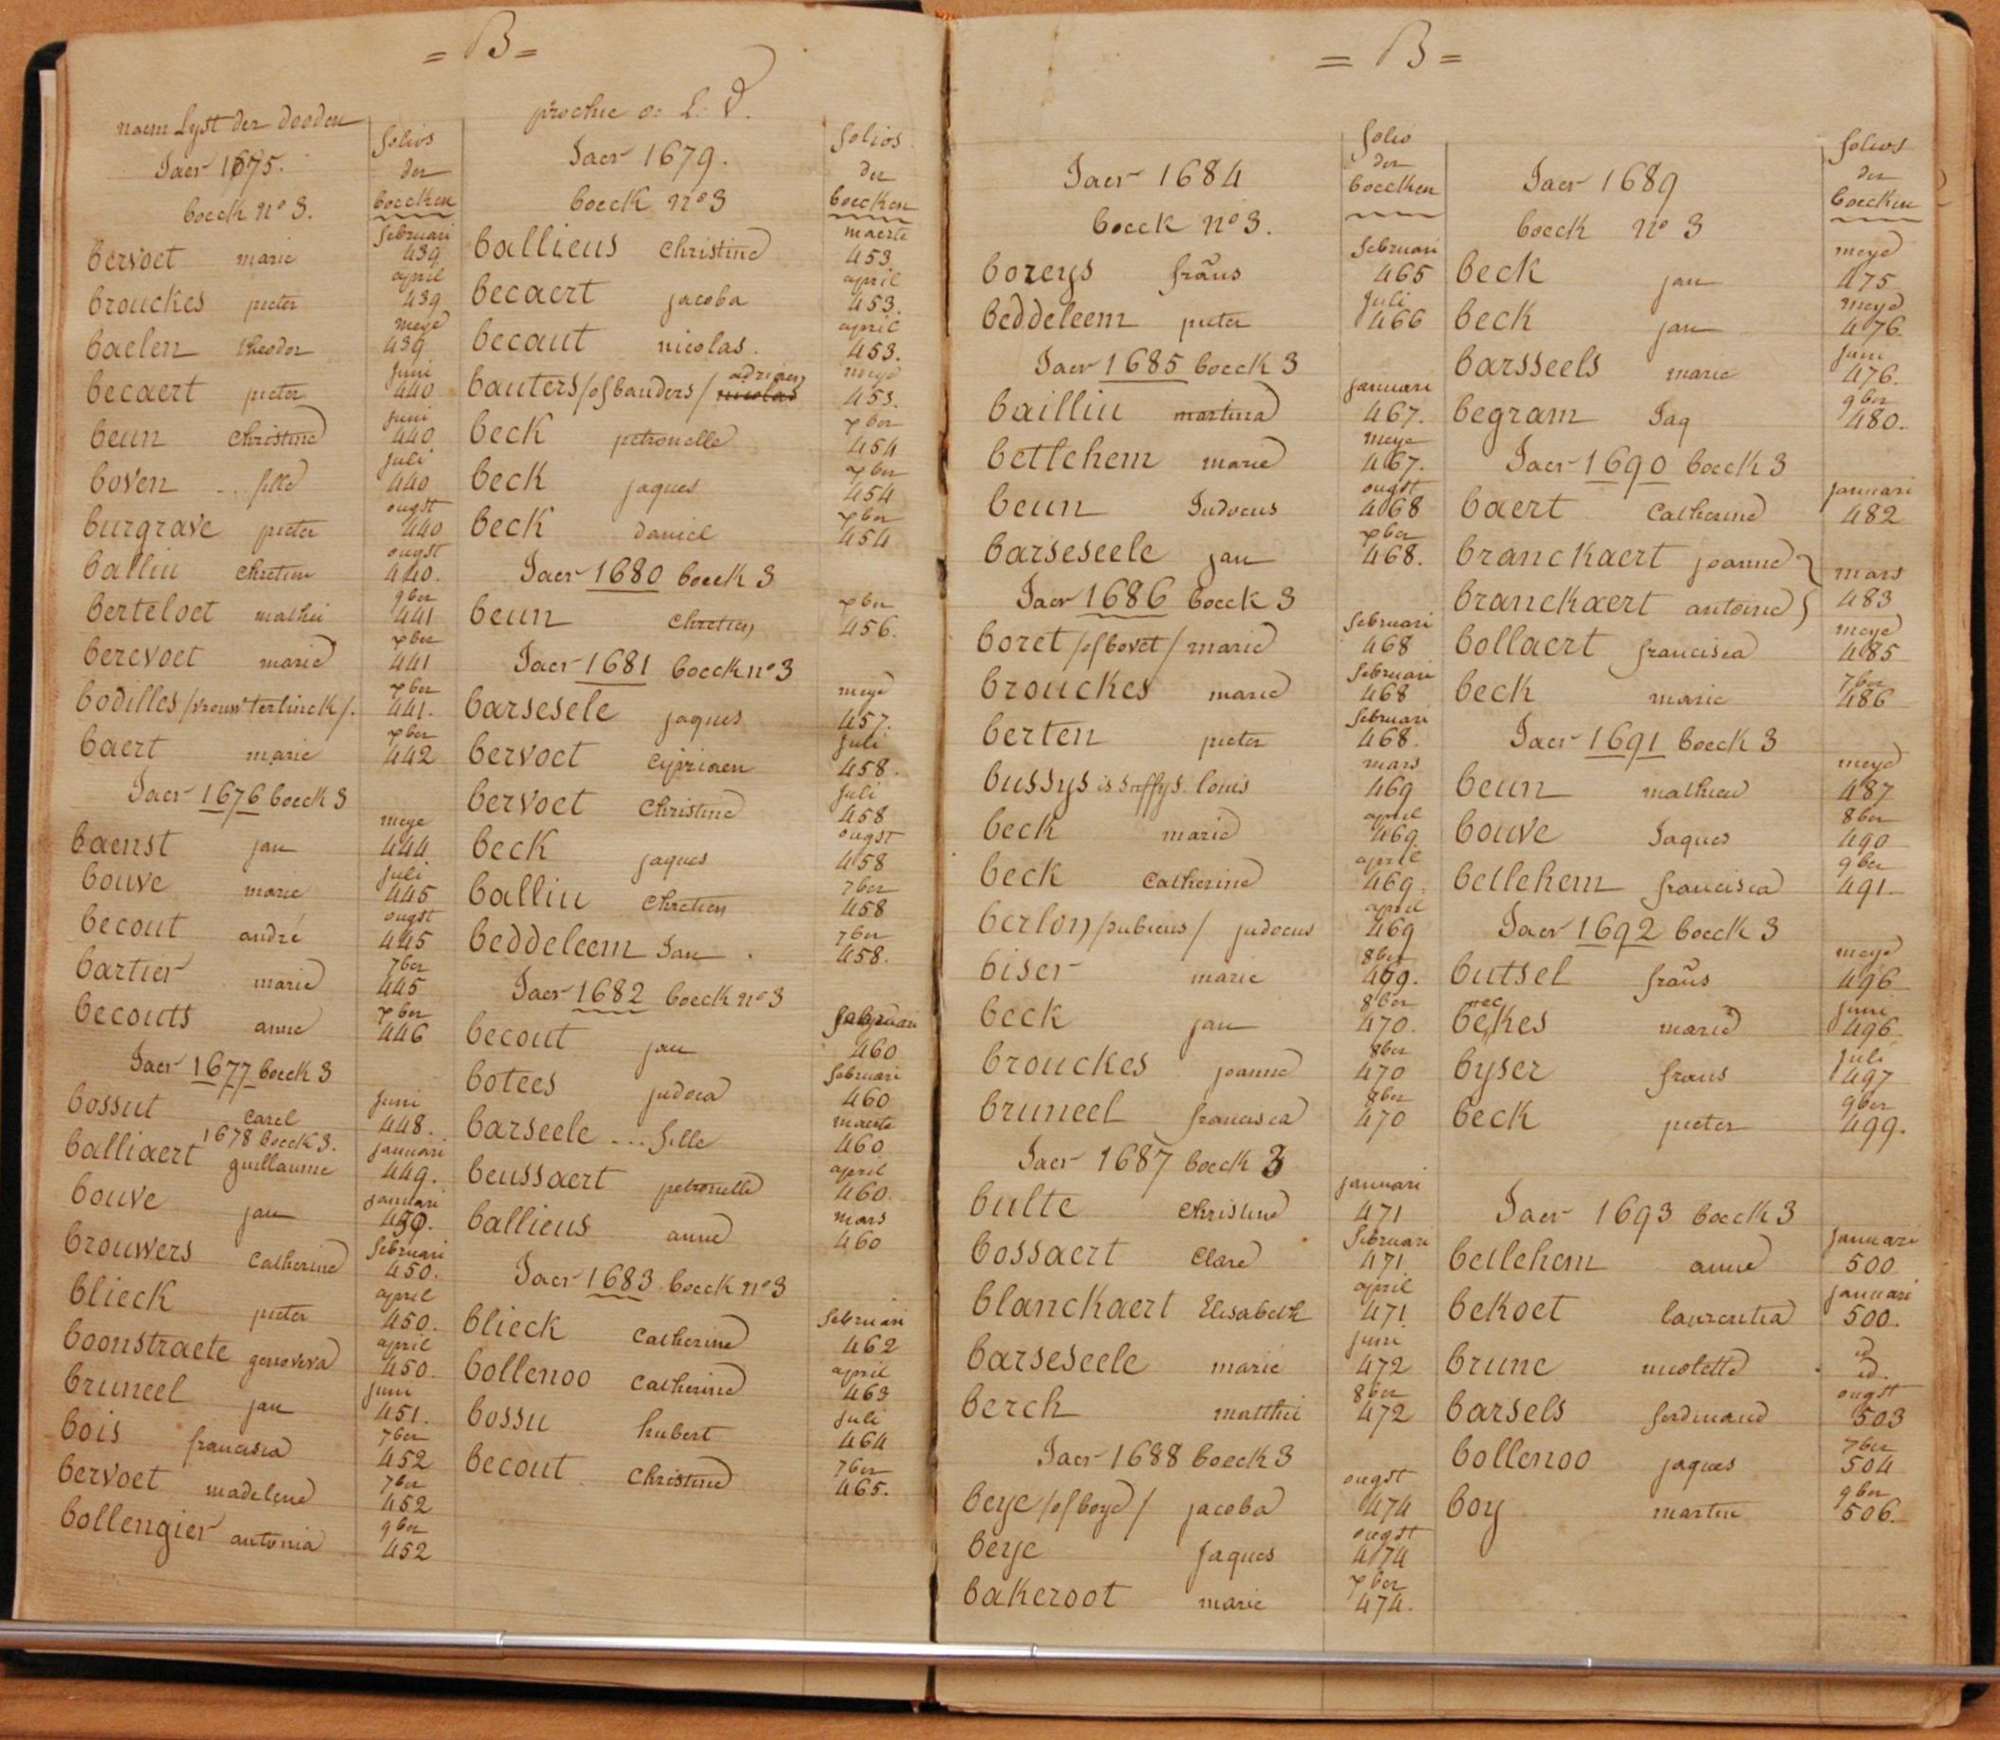 = B =
naem Lyst der dooden
prochie O. L. V.
Jaer 1675.
boeck no 3.
folios der boecken
bervoet marie februari 439
brouckes pieter april 439
baelen theodor meye 439
becaert pieter juni 440
beun Christine juni 440
boven ... fille juli 440
burgrave pieter ougst 440
balliu Chretien ougst 440.
berteloet mathii 9ber 441
berevoet marie xber 441
bodilles /vrouw terlinck/. xber 441.
baert marie xber 442
Jaer 1676 boeck 3
baenst jan meye 444
bouve marie juli 445
becout andré ougst 445
bartier marie 7ber 445
becouts anne xber 446
Jaer 1677 boeck 3
bossut Carel juni 448.
1678 boeck 3.
balliaert guillaume januari 449.
bouve jan januari 450.
brouwers Catherine februari 450.
blieck pieter april 450.
boonstraete genoveva april 450.
bruneel jan juni 451.
bois francisca 7ber 452
bervoet madelene 7ber 452
bollengier antonia 9ber 452
Jaer 1679.
boeck no 3
folios der boecken
ballieus Christine maerte 453
becaert jacoba april 453.
becaut nicolas. april 453.
bauters /of bauders/ nicolas adriaen meye 453.
beck petronelle xber 454
beck jaques xber 454
beck daniel xber 454
Jaer 1680 boeck 3
beun Chretien xber 456.
Jaer 1681 boeck no 3
barsesele jaques meye 457.
bervoet Cypriaen juli 458.
bervoet Christine juli 458
beck jaques ougst 458
balliu Chretien 7ber 458
beddeleem Jan 7ber 458.
Jaer 1682 boeck no 3
becout jan februari 460
botees judoca februari 460
barseele ... fille maerte 460
beussaert petronelle april 460.
ballieus anne mars 460
Jaer 1683 boeck no 3
blieck Catherine februari 462
bollenoo Catherine april 463
bossu hubert juli 464
becout Christine 7ber 465.
= B =
Jaer 1684
boeck no 3.
folio der boecken
boreys frans februari 465
beddeleem pieter juli 466
Jaer 1685 boeck 3
bailliu martina januari 467.
betlehem marie meye 467.
beun Judocus ougst 468
barseseele jan xber 468.
Jaer 1686 boeck 3
boret /of bovet/ marie februari 468
brouckes marie februari 468
berten pieter februari 468.
bussys is buffys. louis mars 469
beck marie april 469.
beck Catherine april 469.
berlon /dubieus/ judocus april 469
biser marie 8ber 469.
beck jan 8ber 470.
brouckes joanne 8ber 470
bruneel francisca 8ber 470
Jaer 1687 boeck 3
bulte Christine januari 471
bossaert Clare februari 471
blanckaert Elisabeth april 471
barseseele marie juni 472
berck matthii 8ber 472
Jaer 1688 boeck 3
beye /of boye/ jacoba ougst 474
beye Jaques ougst 474
bakeroot marie xber 474.
Jaer 1689
boeck no 3
folios der boecken
beck jan meye 475
beck jan meye 476.
barsseels marie juni 476.
begram Jaq 9ber 480.
Jaer 1690 boeck 3
baert Catherine januari 482
branckaert joanne } mars
branckaert antoine } 483
bollaert francisca meye 485
beck marie 7ber 486
Jaer 1691 boeck 3
beun mathieu meye 487
bouve Jaques 8ber 490
betlehem francisca 9ber 491.
Jaer 1692 boeck 3
butsel frans meye 496
beckes marie juni 496.
byser frans juli 497
beck pieter 9ber 499.
Jaer 1693 boeck 3
betlehem anne januari 500
bekoet laurentia januari 500.
brune nicolette id. id.
barsels ferdinand ougst 503
bollenoo jaques 7ber 504
boy martin 9ber 506.